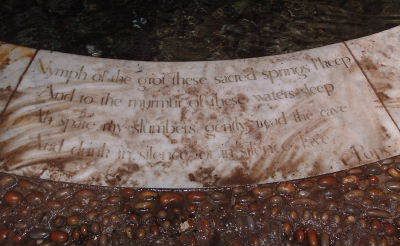 Nymph of the grot these sacred springs I keep
And to the murmur of these waters sleep
Ah spare my slumbers gently tread the cave
And drink in silence or in silence lave